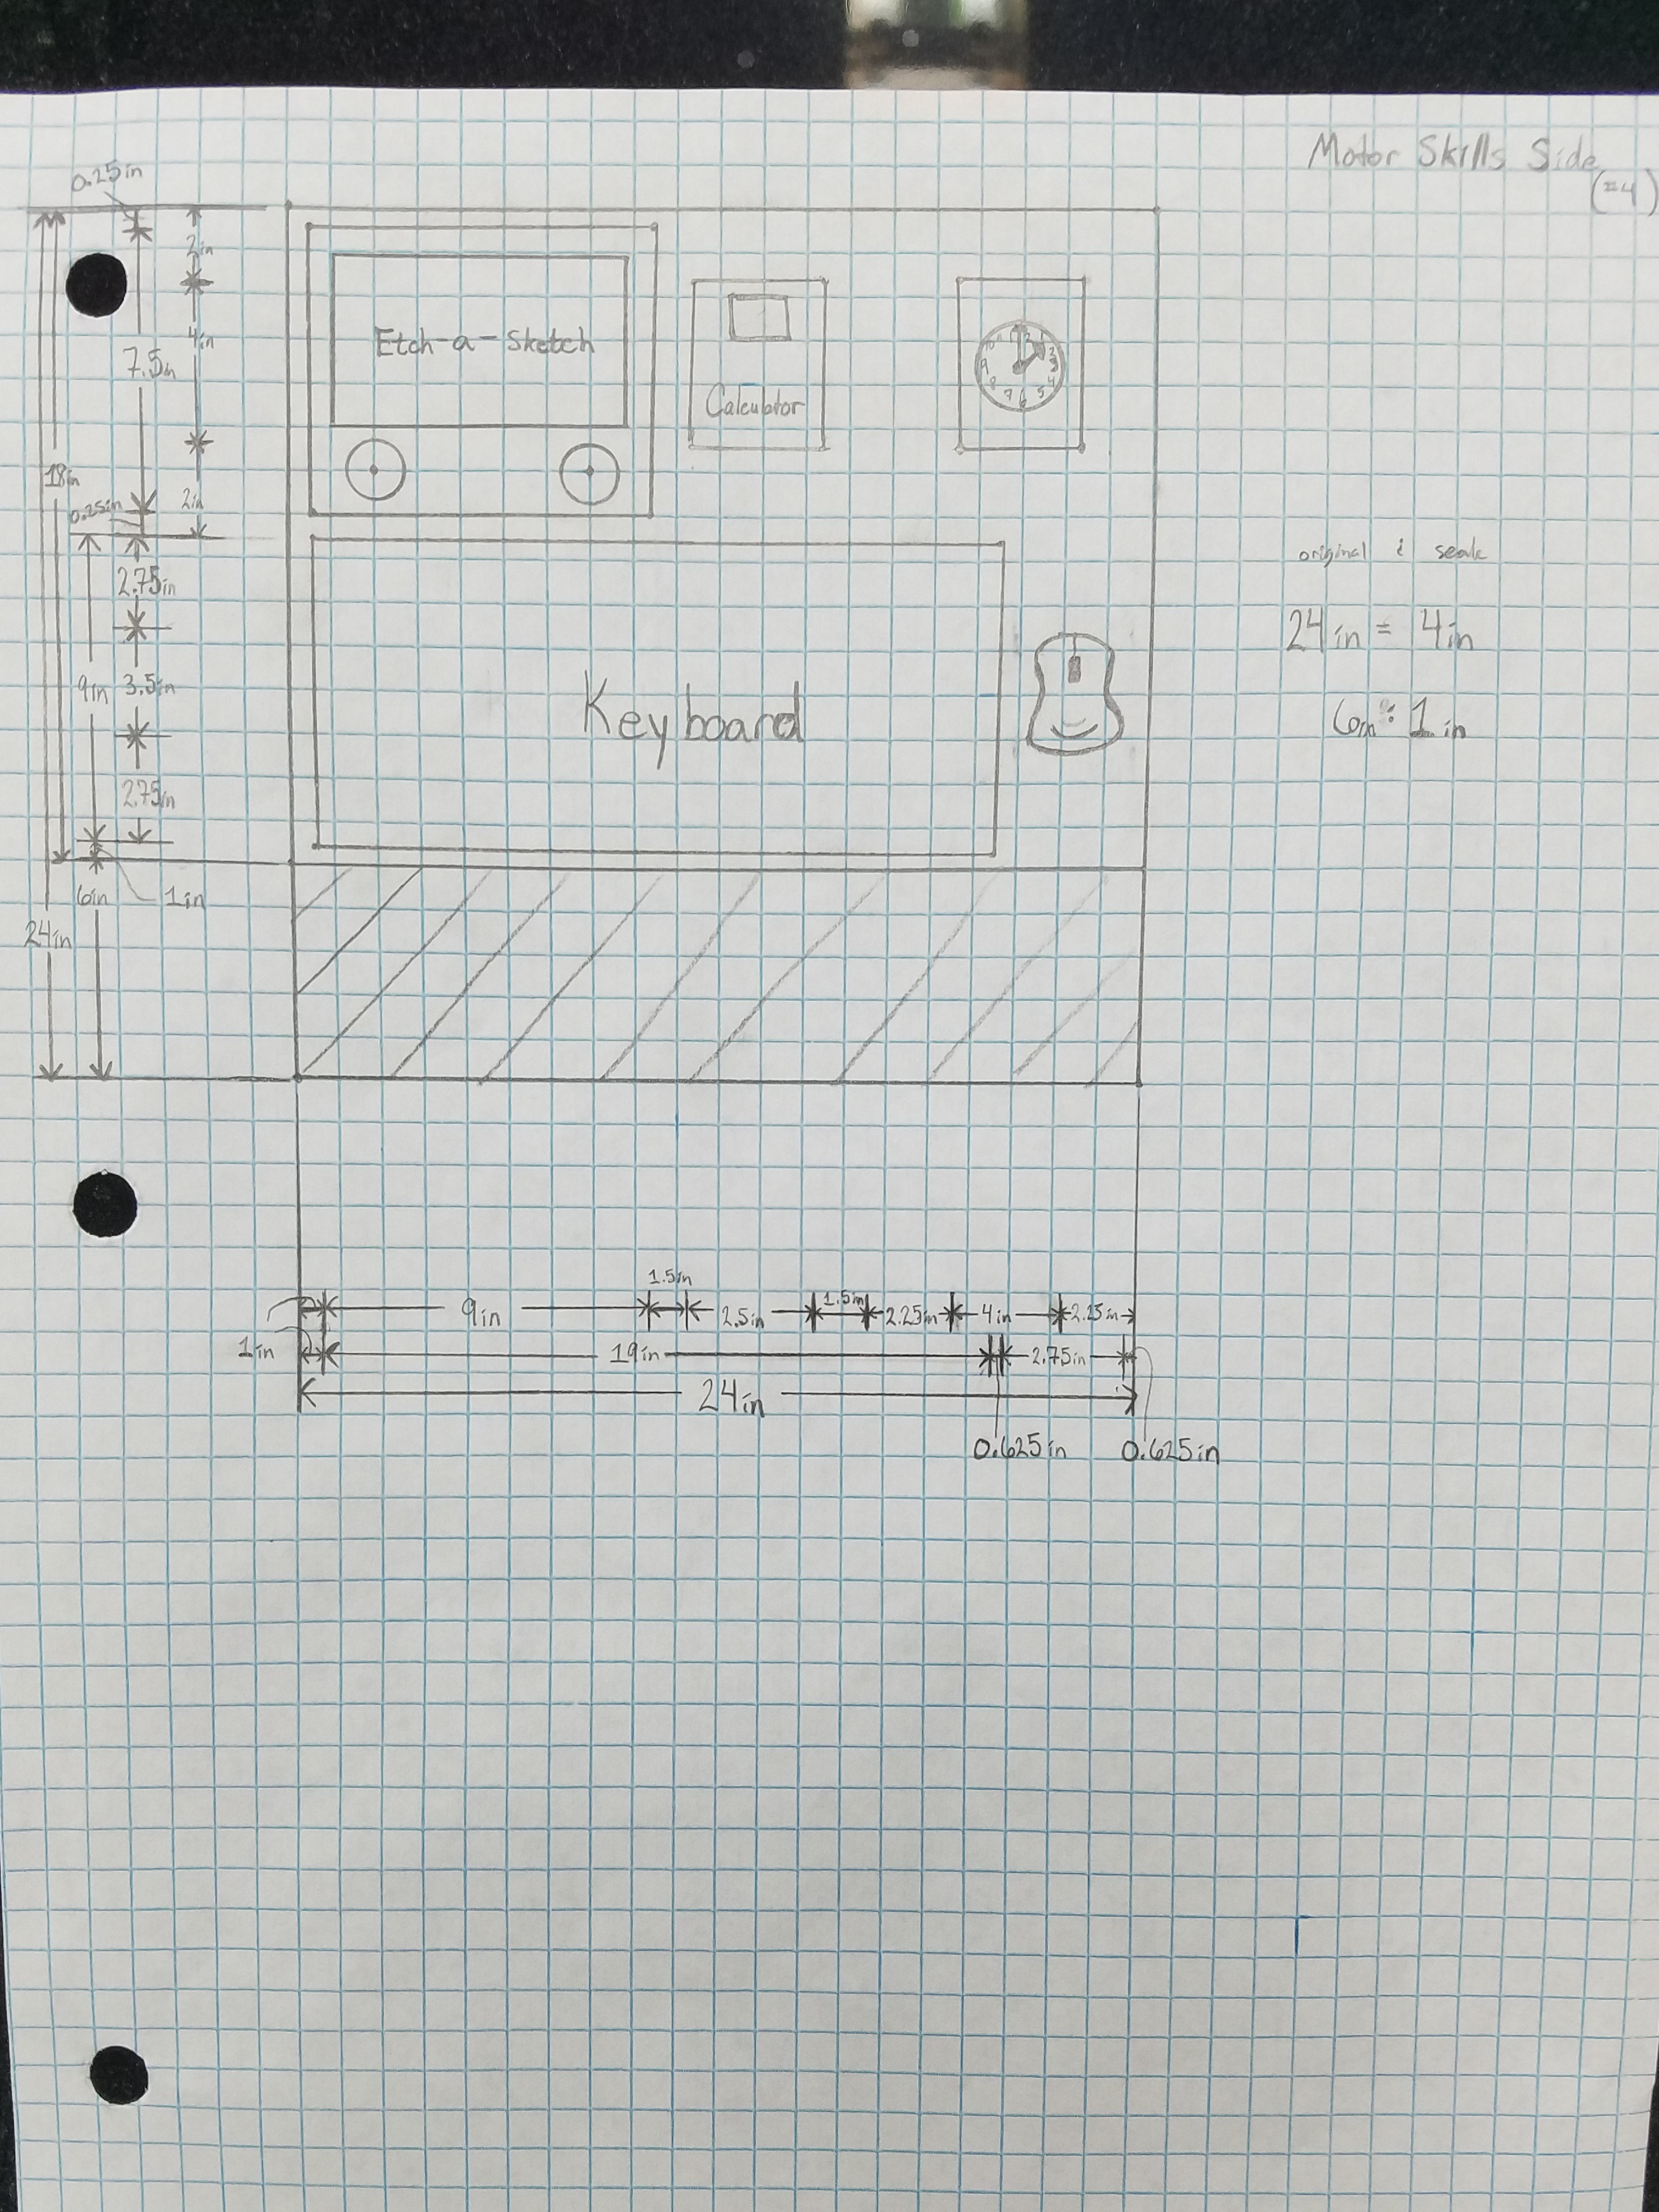 Motor Skills Side
(=4)
0.25in
2in
4in
7.5in
2in
18in
0.25in
2.75in
9in 3.5in
2.75in
6in 1in
24in
Etch-a-Sketch
Calculator
12
3
4
5
6
7
8
9
10
Keyboard
original : scale
24in = 4in
6in : 1in
1.5in
9in 2.5in 1.5in 2.25in 4in 2.25in
1in 19in 2.75in
24in
0.625in 0.625in